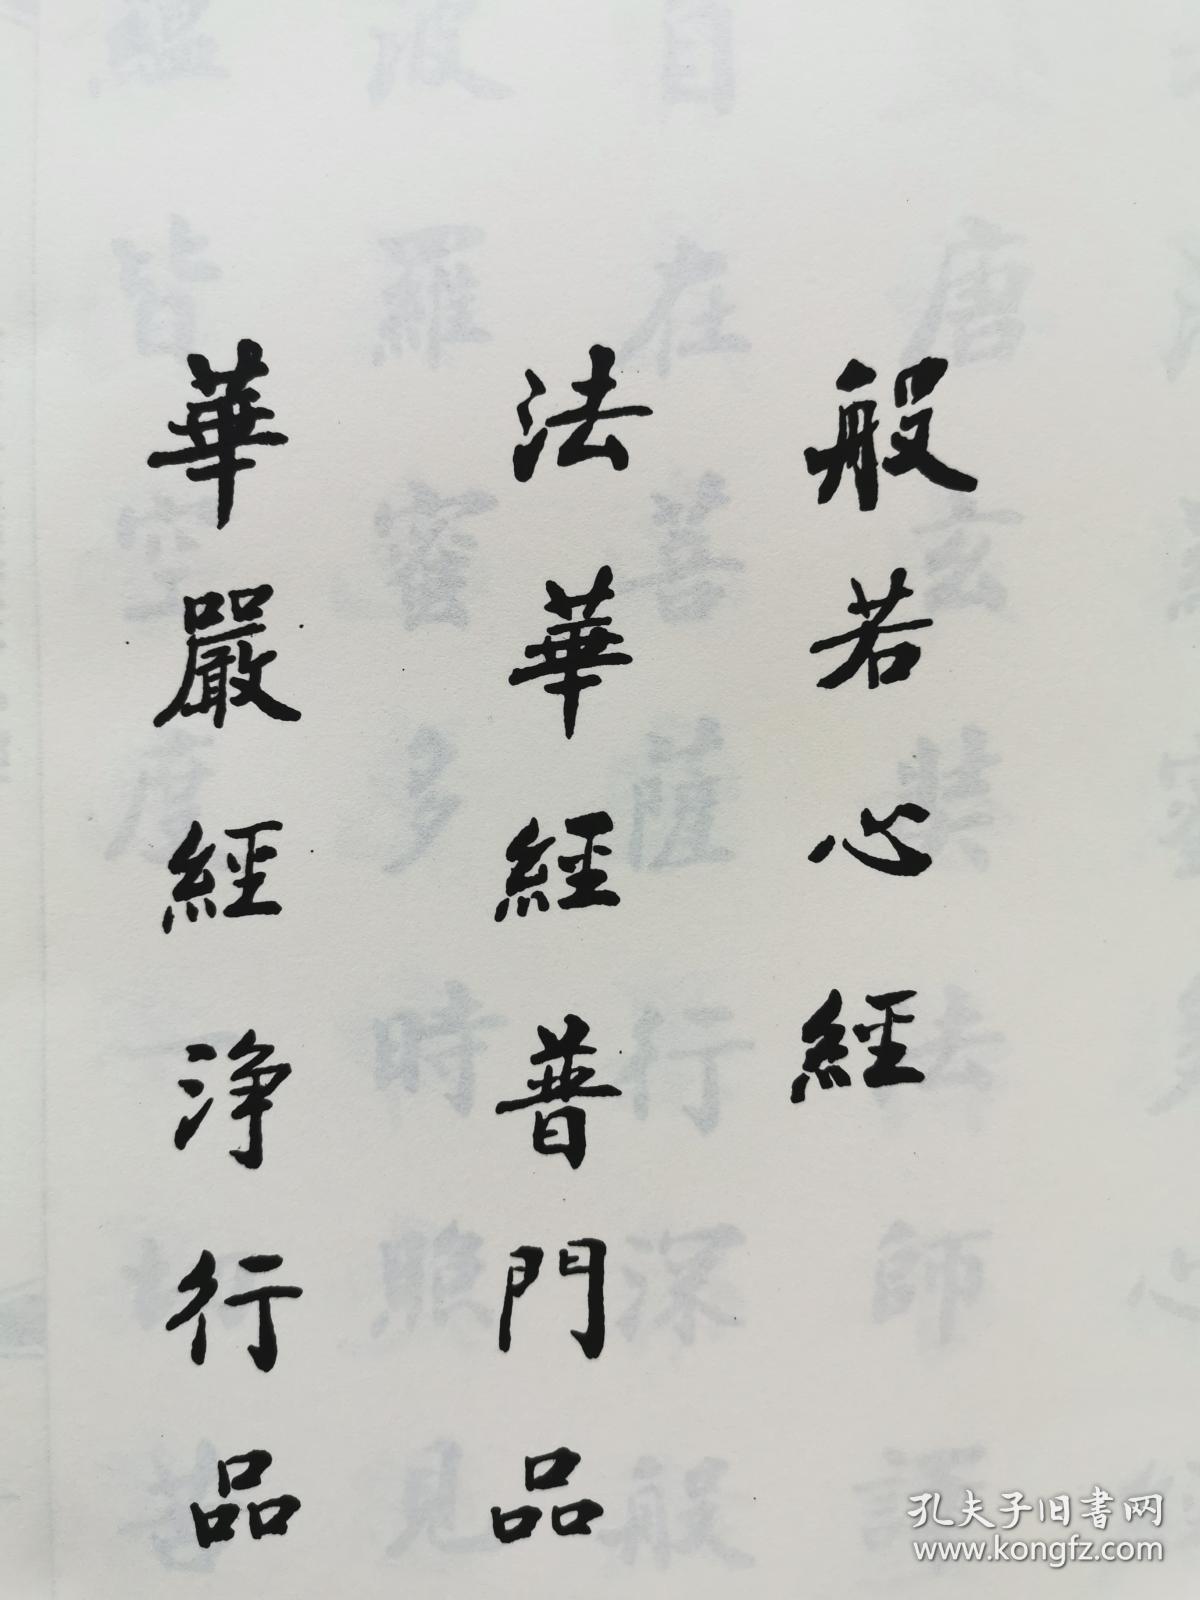 般若心經
法華經普門品
華嚴經淨行品
孔夫子旧书网
www.kongfz.com